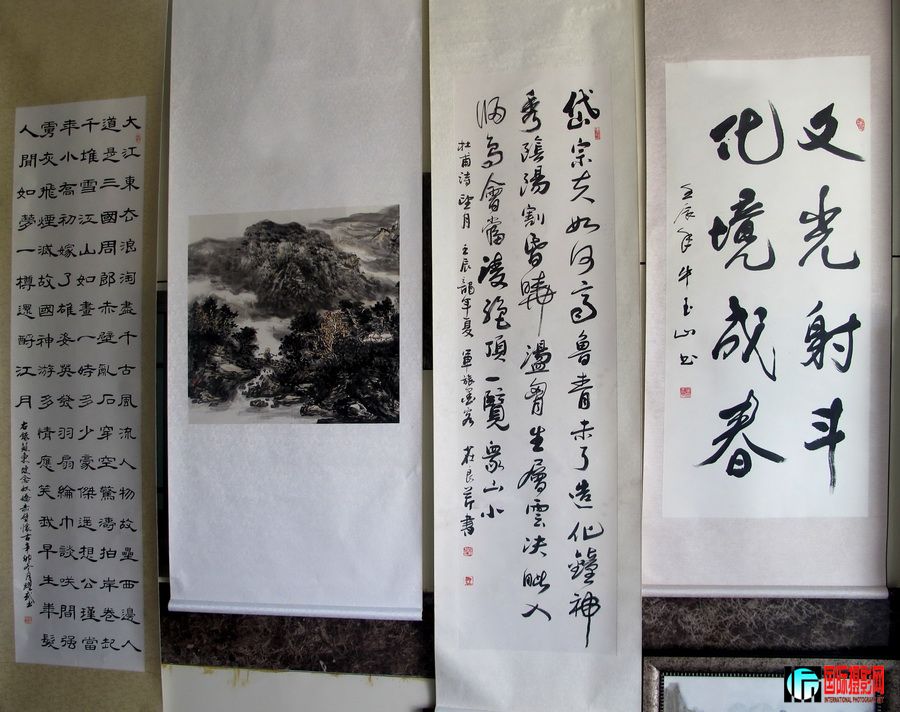 文光射斗
化境成春
壬辰年牛玉山书
岱宗夫如何齊魯青未了造化鐘神
秀陰陽割昏曉盪胸生層雲決眦入
歸鳥會當凌絕頂一覽衆山小
杜甫诗望月 壬辰龍年夏 軍旅墨客 莊良芹書
大江東去浪淘盡千古風流人物故壘西邊人
道是三國周郎赤壁亂石穿空驚濤拍岸卷起
千堆雪江山如畫一時多少豪傑遥想公瑾當
年小喬初嫁了雄姿英發羽扇綸巾談笑間强
虜灰飛煙滅故國神游多情應笑我早生華髮
人間如夢一樽還酹江月 右錄蘇東坡念奴嬌赤壁懷古辛卯冬月
国际摄影网
INTERNATIONAL PHOTOGRAPHY.NET